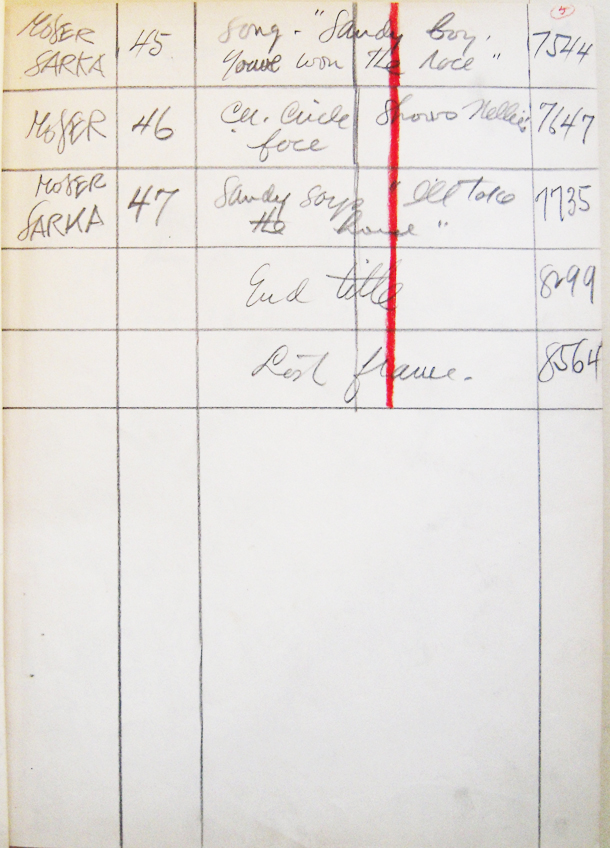 5
MOSER 45 Song - "Sandy boy. 7544
SARKA youve won the race "
MOSER 46 Cu. Circle Shows Nellies 7647
face
MOSER 47 Sandy says "Ill take 7735
SARKA the house "
End title 8299
Last frame. 8564